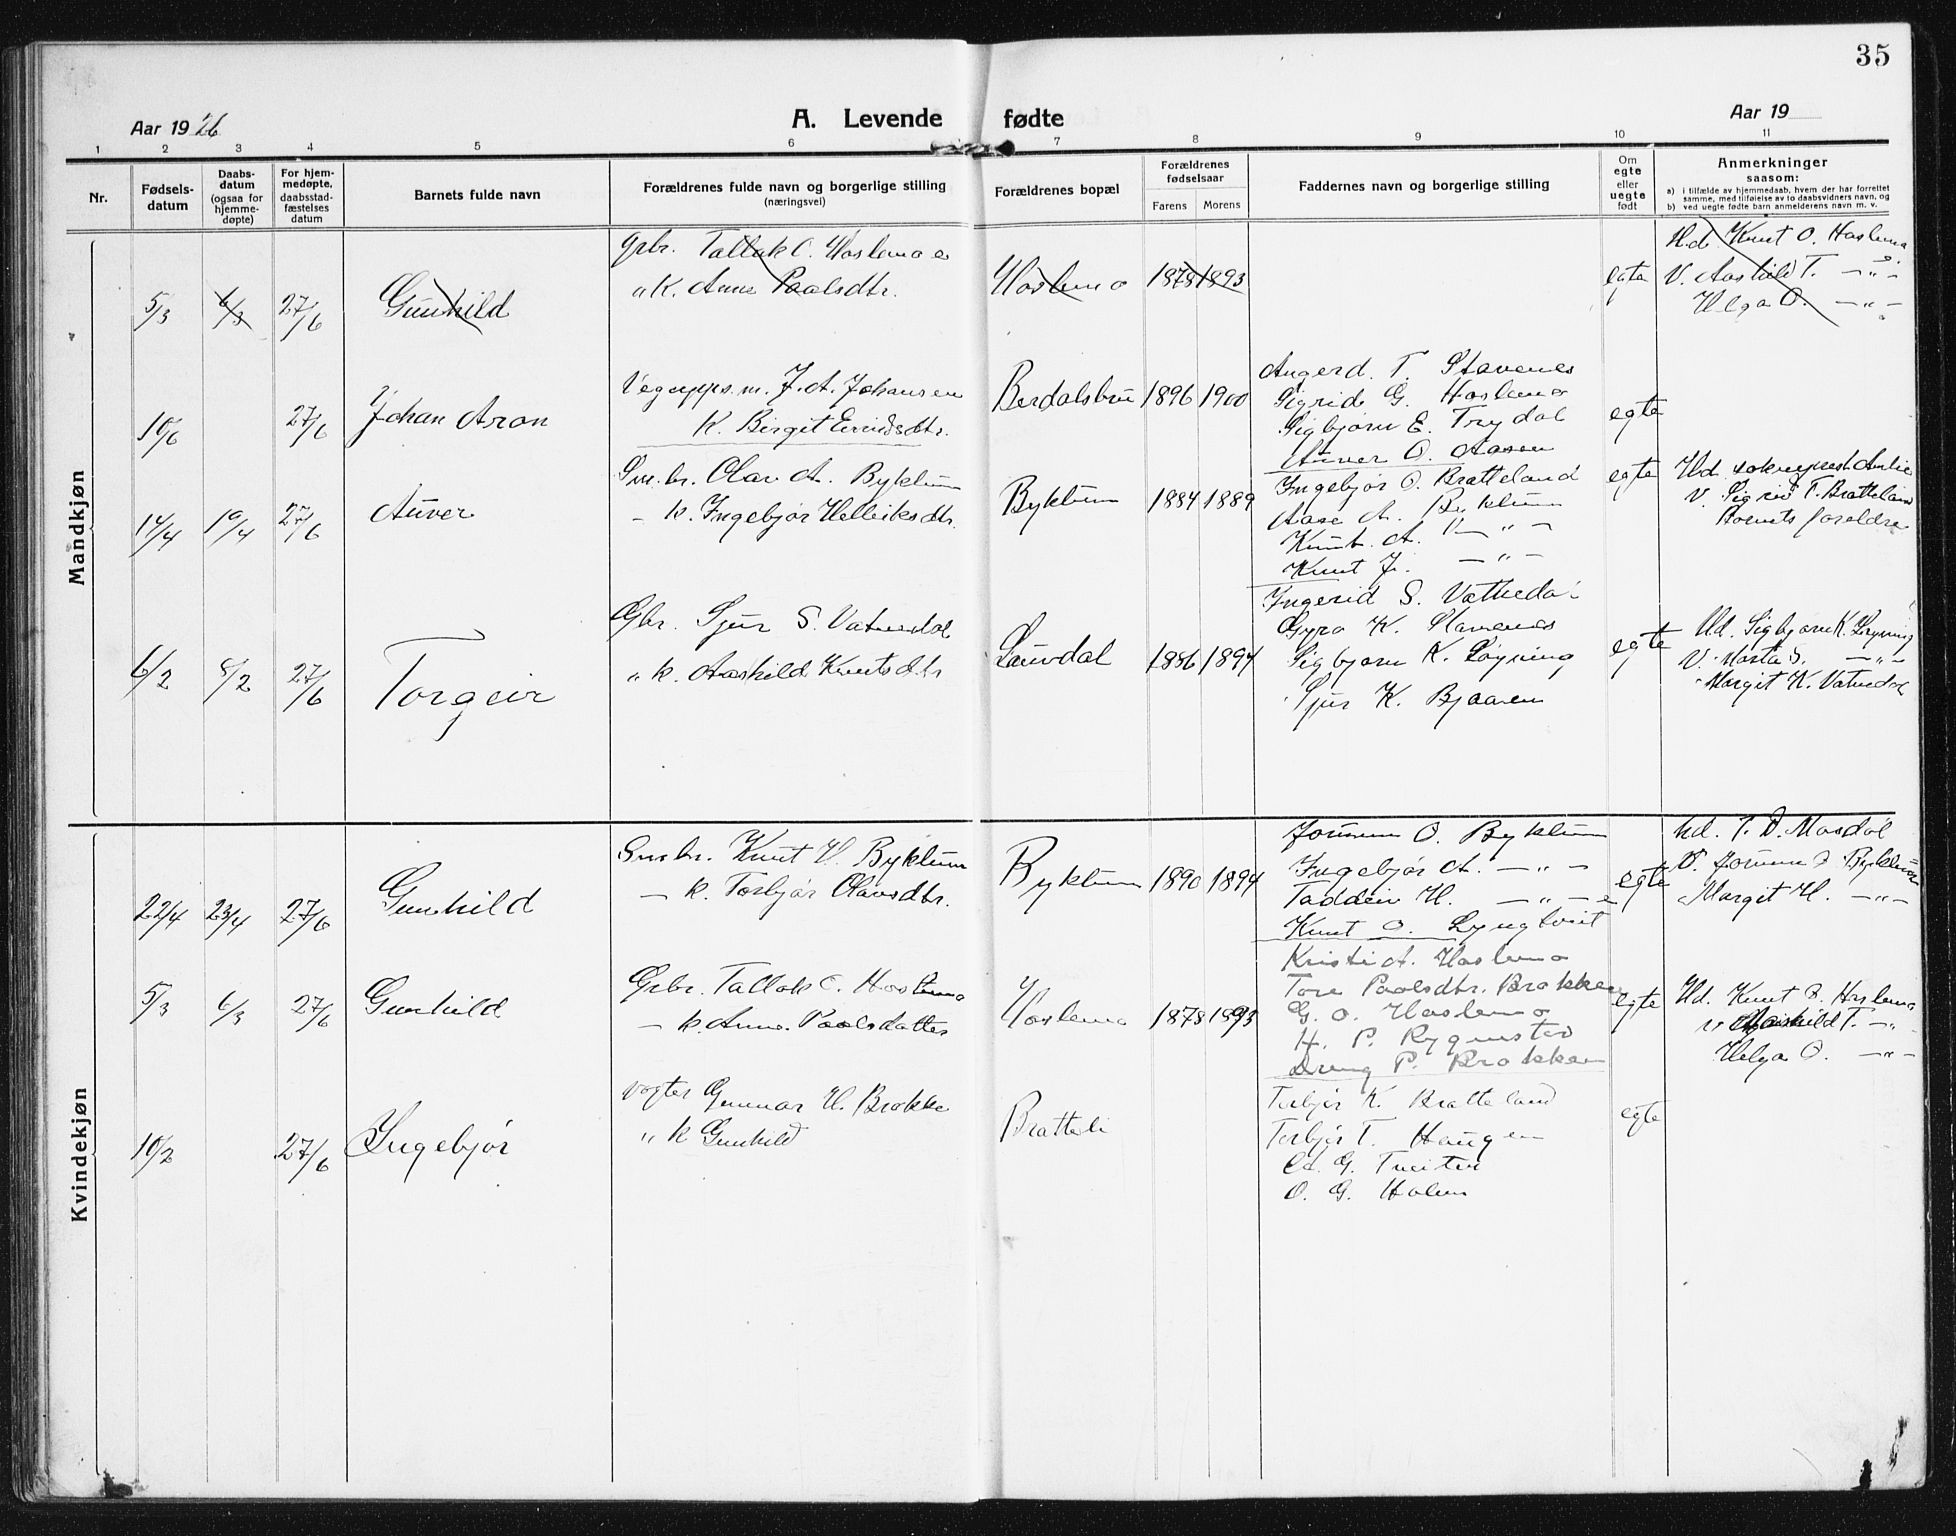 35
Aar 1926
A. Levende fødte
Aar 19
1 2 3 4 5 6 7 8 9 10 11
Nr.
Fødsels-
datum
Daabs-
datum
(ogsaa for
hjemme-
døpte)
For hjem-
medøpte,
daabsstad-
fæstelses
datum
Barnets fulde navn
Forældrenes fulde navn og borgerlige stilling
(næringsvei)
Forældrenes bopæl
Forældrenes
fødselsaar
Farens Morens
Faddernes navn og borgerlige stilling
Om
egte
eller
uegte
født
Anmerkninger
saasom:
a) i tilfælde av hjemmedaab, hvem der har forrettet
samme, med tilføielse av to daabsvidners navn, og
b) ved uegte fødte barn anmelderens navn m. v.
Mandkjøn
5/3 6/3 27/6
Gunhild
Grbr. Tallak O. Hoslemo
" k. Anne Paalsdtr.
Hoslemo
1878 1893
egte
Hd. Knut O. Hoslemo
V. Aashild T. — " —
Helga O. — " —
10/6 27/6
Johan Aron
J. A. Johansen
k. Birgit Eivindsdtr.
Berdalsbru
1896 1900
Angerd. T. Stavenes
Sigrid G. Hoslemo
Sigbjørn E. Trydal
Auver O. Aasen
egte
14/4 19/4 27/6
Auver
Sm.br. Olav A. Byklum
— k. Ingebjør Helleiksdtr.
Byklum
1884 1889
Ingebjør O. Bratteland
Aase A. Byklum
Knut A. — " —
Knut J. — " —
egte
Hd. sokneprest
V. Sigrid T. Bratteland
Barnets foreldre
6/2 8/2 27/6
Torgeir
Gbr. Sjur S. Vatnedal
" k. Aashild Knutsdtr
Lauvdal
1886 1894
Ingerid S. Vatnedal
Gyro K. Stavenes
Sigbjørn K. Løyning
Sjur K. Bjaaren
egte
Hd. Sigbjørn K. Løyning
V. Marta S. — " —
Margit K. Vatnedal
Kvindekjøn
22/4 23/4 27/6
Gunhild
Smbr. Knut H. Byklum
— k. Torbjør Olavsdtr.
Byklum
1890 1894
Jorunn O. Byklum
Ingebjør A. — " —
Taddeiv H. — " —
Knut O. Lyngtveit
egte
hd. T. D. Mosdøl
V. Jorunn O. Byklum
Margit H. — " —
5/3 6/3 27/6
Gunhild
Grbr. Tallak O. Hoslemo
— k. Anne Paalsdatter
Hoslemo
1878 1893
Kristi A. Hoslemo
Tore Paalsdtr. Brokken
G. O. Hoslemo
H. P. Rygnestad
Dreng P. Brokken
egte
Hd. Knut O. Hoslemo
v. Aashild T. — " —
Helga O. — " —
10/2 27/6
Ingebjør
vogter Gunnar H. Brokke
" k Gunhild
Bratteli
Torbjør K. Bratteland
Torbjør T. Haugen
O. G. Holen
egte